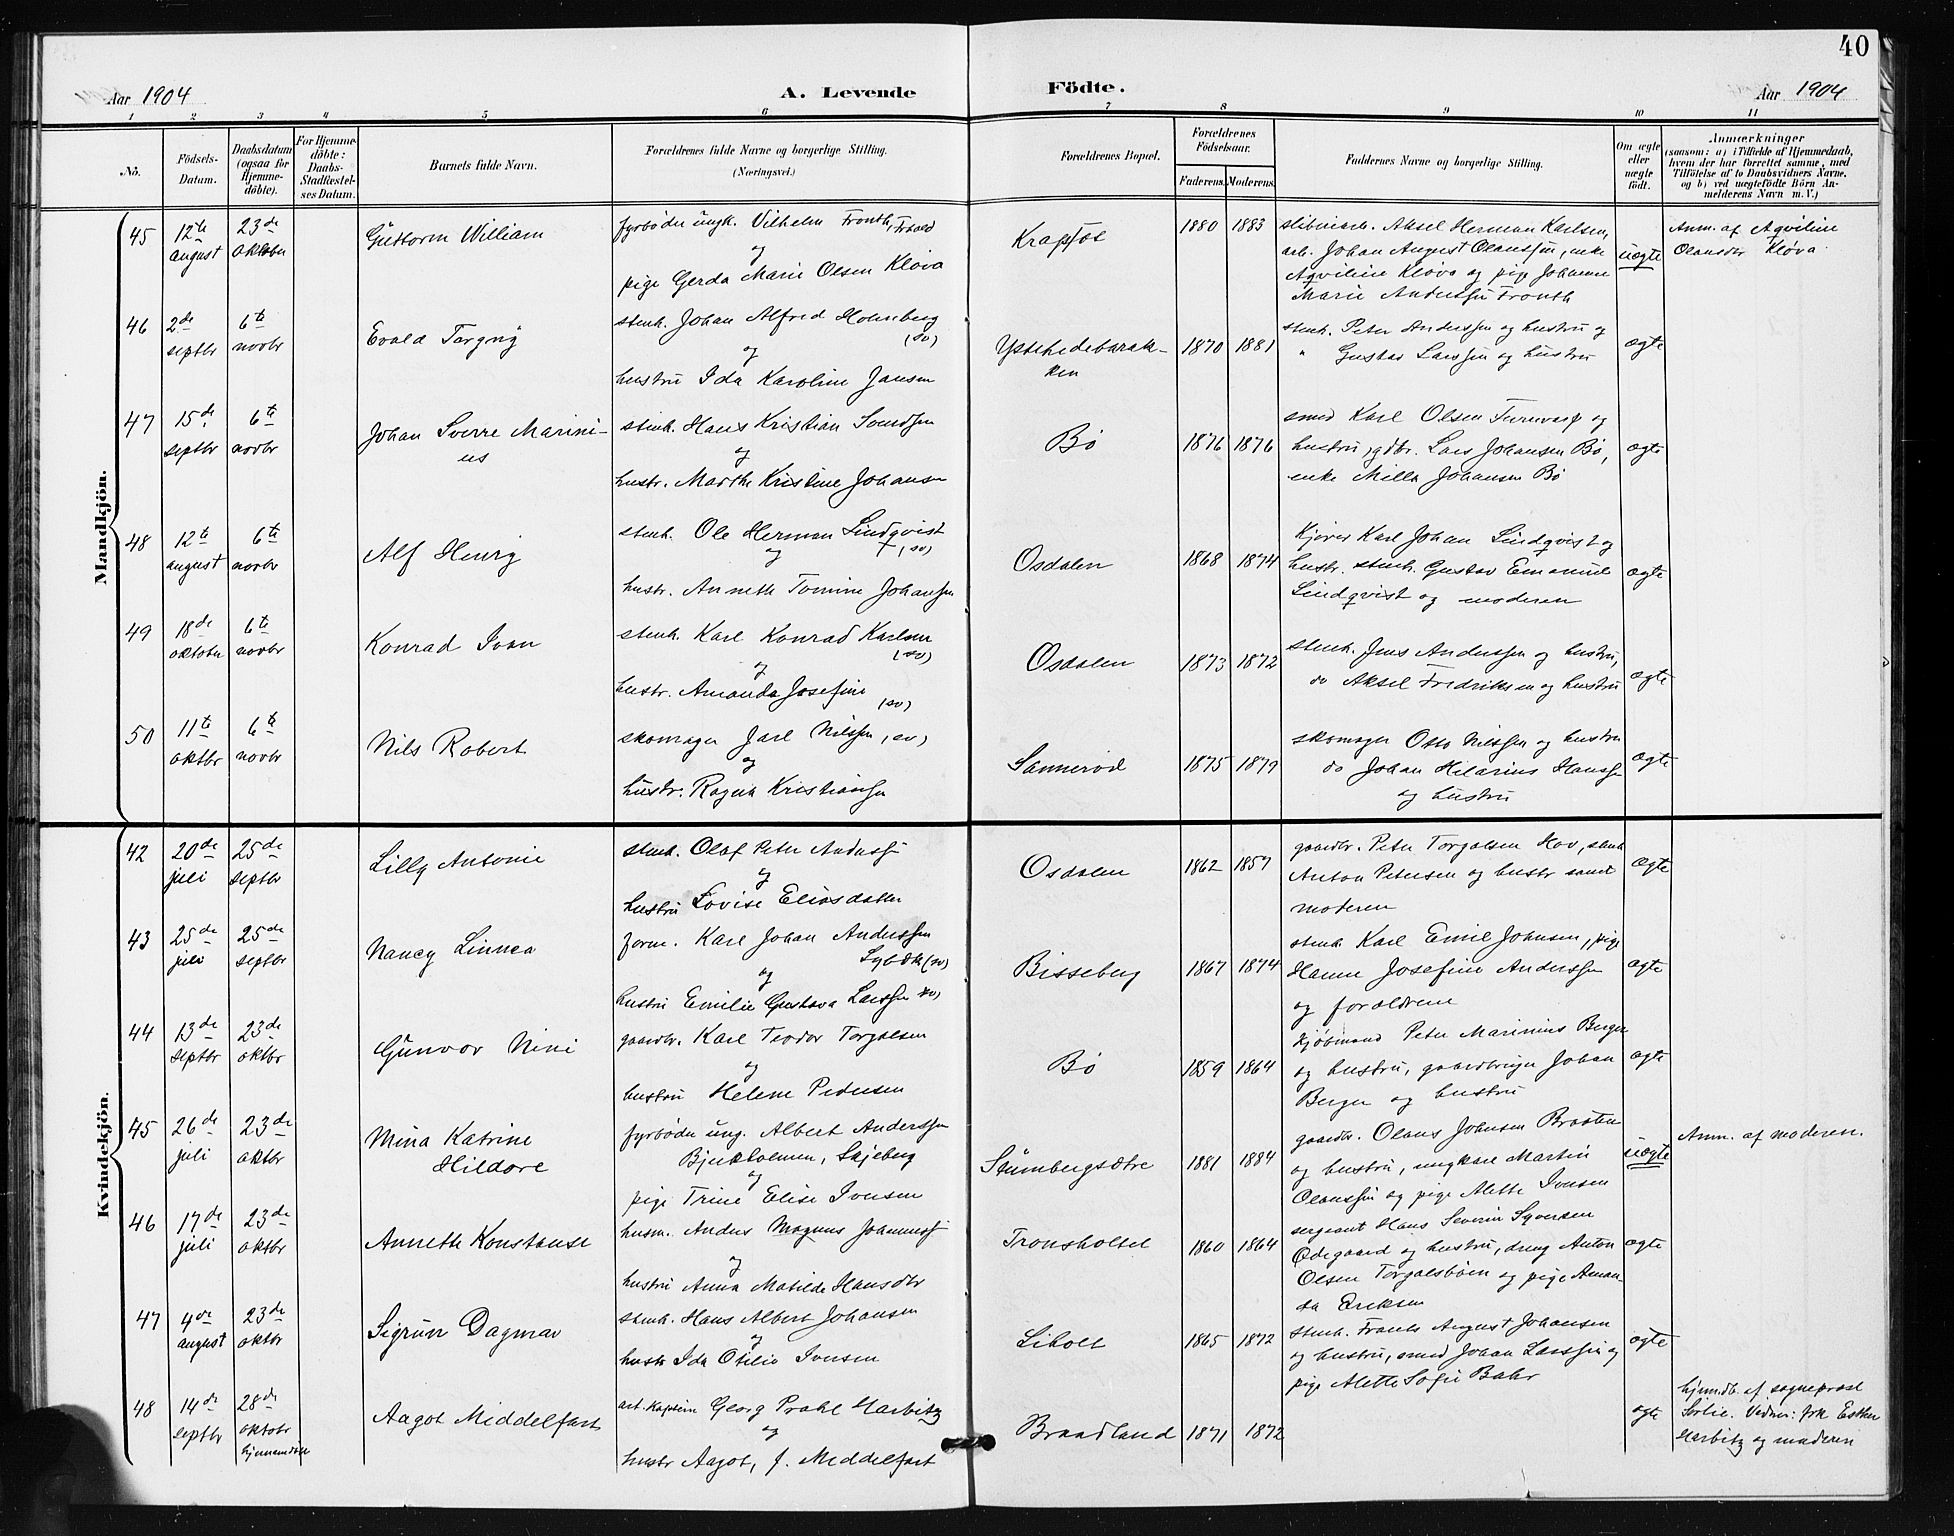 40
Aar 1904
A. Levende
Födte.
Aar 1904
1 2 3 4 5 6 7 8 9 10 11
No.
Födsels-
Datum.
Daabsdatum
(ogsaa for
Hjemme-
döbte).
For Hjemme-
döbte:
Daabs-
Stadfæstel-
ses Datum.
Barnets fulde Navn.
Forældrenes fulde Navne og borgerlige Stilling.
(Næringsvei.)
Forældrenes Bopæl.
Forældrenes
Födselsaar.
Faderens. Moderens.
Faddernes Navne og borgerlige Stilling.
Om ægte
eller
uægte
födt.
Anmærkninger
(saasom: a) i Tilfælde af Hjemmedaab,
hvem der har forrettet samme, med
Tilföielse af to Daabsvidners Navne.
og b) ved uægtefödte Börn An-
melderens Navn m. V.)
Mandkjön.
45 12te august 23de oktober
Guttorm William
fyrbøder ungk. Vilhelm Fronth,
og
pige Gerda Marie Olsen Kløva
Krapfos
1880 1883
slibniarb. Aksel Herman Karlsen,
arb. Johan August Olaussen, enke
Aqviline Kløva og pige Johanne
Marie Anderssen Fronth
uægte
Anm. af Aqviline
Olausdtr Kløva
46 2de septbr 6te novbr
Evald Torgny
stenh. Johan Alfred Holmberg
(sv)
og
hustru Ida Karoline Jansen
Ystehedebarak-
ken
1870 1881
stenh. Peter Anderssen og hustru og
" Gustav Larssen og hustru
ægte
47 15de septbr 6te novbr
Johan Sverre Marini-
us
stenh. Hans Kristian Svendsen
og
hustr. Marthe Kristine Johansen
Bø
1876 1876
smed Karl Olsen og
hustru, gdbr. Lars Johansen Bø,
enke Milla Johansen Bø
ægte
48 12te august 6te novbr
Alf Henry
stenh. Ole Herman Lindqvist
og (sv)
hustr. Anneth Tomine Johanssen
Osdalen
1868 1874
Kjører Karl Johan Lindqvist og
hustr. stenh. Gustav Emanuel
Lindqvist og moderen
ægte
49 18de oktober 6te novbr
Konrad Ivan
stenh. Karl Konrad Karlsen
(sv)
og
hustr. Amanda Josefine
(sv)
Osdalen
1873 1872
stenh. Jens Anderssen og hustru,
do Aksel Fredriksen og hustru
ægte
50 11te oktbr 6te novbr
Nils Robert
skomager Jarl Nilssen, (sv)
og
hustr. Ragna Kristiansen
Sannerød
1875 1879
skomager Otto Nilssen og hustru
do Johan Hilarius Hanssen
og hustru
ægte
Kvindekjön.
42 20de juli 25de septbr
Lilly Antonie
stenh. Olaf Peter Anderssen
og
hustru Lovise Eliasdatter
Osdalen
1862 1857
gaardbr. Peter Torgalsen Hov, stenh
Anton Petersen og hustr samt
moderen
ægte
43 25de juli 25de septbr
Nancy Linnea
form. Karl Johan Anderssen
(sv)
og
hustru Emilie Gustava Larssen (sv)
Bisseberg
1867 1874
stenh. Karl Emil Johnsen, pige
Hanne Josefine Anderssen
og forældrene
ægte
44 13de septbr 23de oktbr
Gunvor Nini
gaardbr. Karl Teodor Torgalsen
og
hustru Helene Pedersen
Bø
1859 1864
kjøbmand Peter Marinius Berger
og hustru, gaardbruger Johan
Berger og hustru
ægte
45 26de juli 23de oktbr
Mina Katrine
Hildore
fyrbøder ung. Albert Anderssen
Bjerkholmen, Skjeberg
og
pige Trine Elise Ivensen
Strømbergsætre
1881 1884
gaardbr. Olaus Johnsen Braaten
og hustru, ungkarl Martin
Olaussen og pige Alette Ivensen
uægte
Anm. af moderen.
46 17de juli 23de oktbr
Annette Konstanse
husm. Anders Magnus Johannessen
og
hustru Anna Matilde Hansdtr
Tronsholtet
1860 1864
sergeant Hans Severin Syversen
Ødegaard og hustru, dreng Anton
Olsen Torgalsbøen og pige Aman-
da Eriksen
ægte
47 4de august 23de oktbr
Sigrun Dagmar
stenh. Hans Albert Johansen
og
hustr Ida Otilie Ivensen
Liholt
1865 1872
stenh. Frants August Johansen
og hustru, smed Johan Larssen og
pige Alette Sofie Bakr
ægte
48 14de septbr 28de oktobr hjemmedøbt
Aagot Middelfart
art. kaptein Georg Prahl Harbitz
og
hustr Aagot, f. Middelfart
Braadland
1871 1872
ægte
hjemdb. af sogneprest
Sørlie. Vidner: frk Esther
Harbitz og moderen